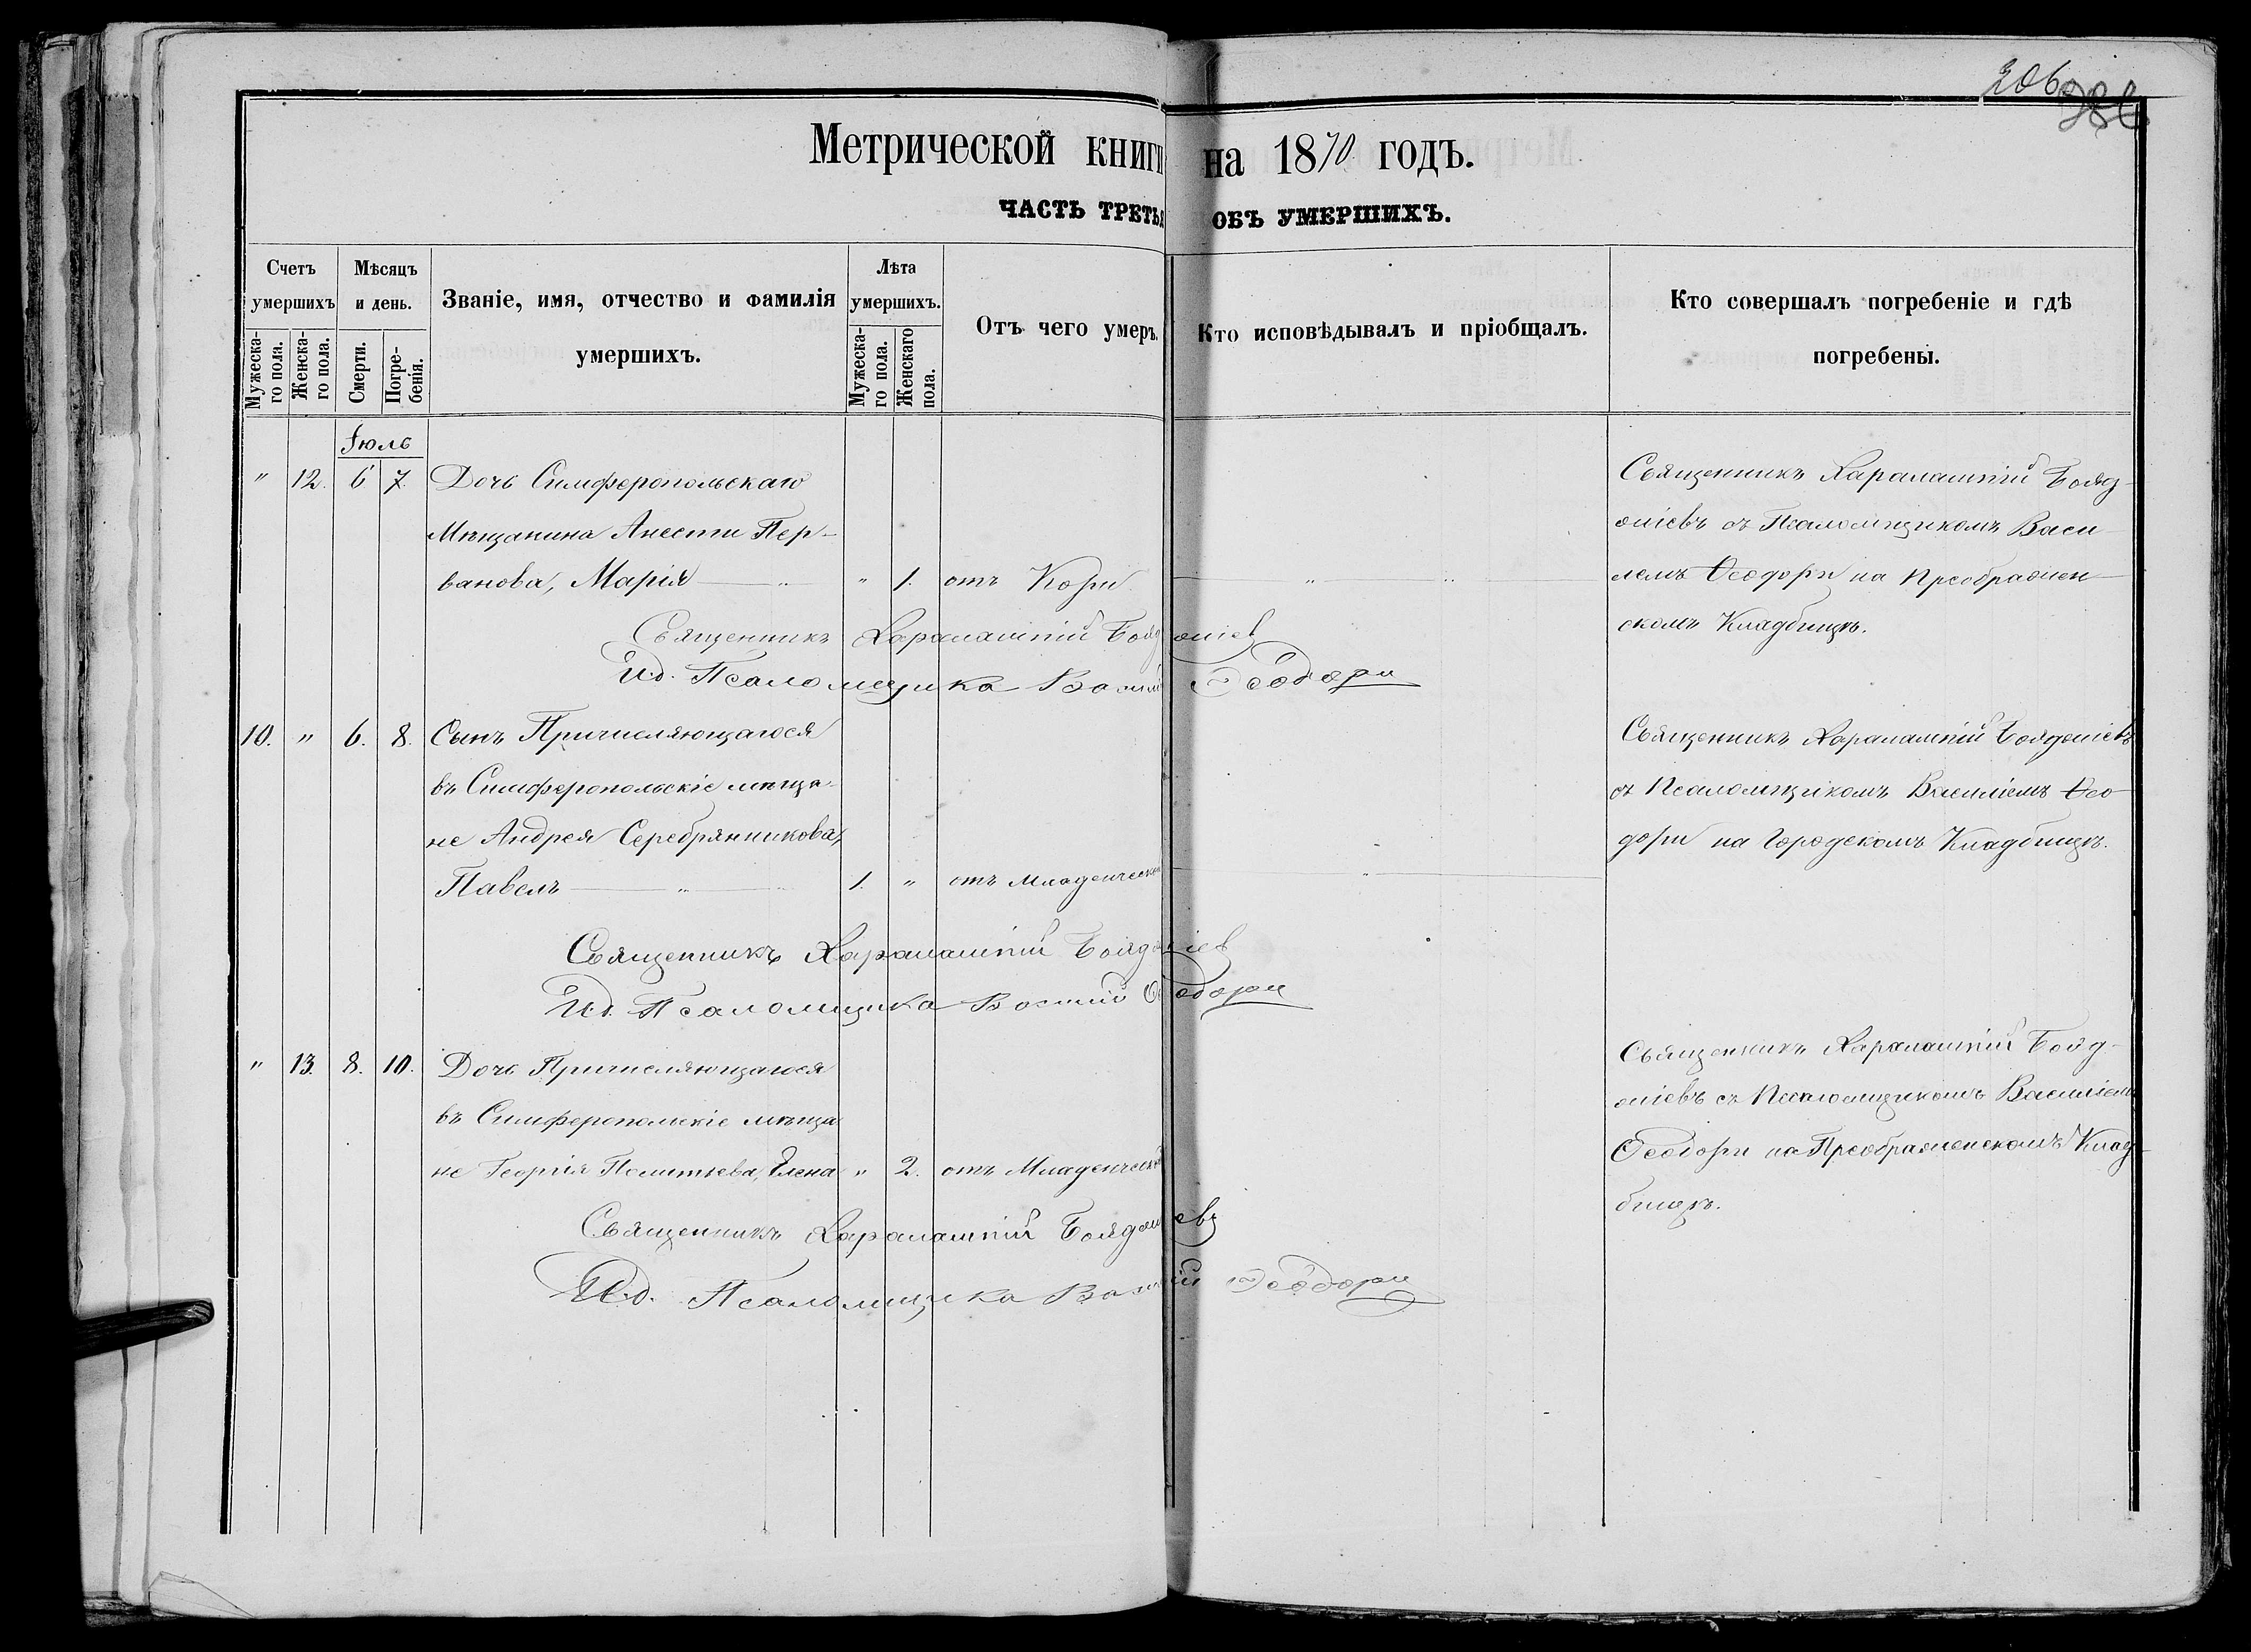 206
Метрической книги на 1870 годъ.
ЧАСТЬ ТРЕТЬЯ ОБЪ УМЕРШИХЪ.
Счетъ умершихъ
Мужеска-го пола.
Женска-го пола.
Мѣсяцъ и день.
Смерти.
Погре-бенія.
Званіе, имя, отчество и фамилія умершихъ.
Лѣта умершихъ.
Мужеска-го пола.
Женскаго пола.
Отъ чего умеръ.
Кто исповѣдывалъ и пріобщалъ.
Кто совершалъ погребеніе и гдѣ погребены.
Іюль
" 12. 6 7. Дочь Симферопольскаго
Мѣщанина Анести Пер-
ванова, Марія " " 1. отъ Кори
Священникъ Харалампій Бояд-
жіевъ съ Псаломщикомъ Васи-
лемъ Ѳеодори на Преображен-
скомъ Кладбищѣ.
Священникъ Харалампій Бояджіев
И.д. Псаломщика Василий Ѳеодори
10. " 6. 8. Сынъ Причисляющагося
въ Симферопольскіе мѣща-
не Андрея Серебрянникова,
Павелъ " 1. " отъ Младенческой
Священникъ Харалампій Бояджіевъ
съ Псаломщикомъ Василіемъ Ѳео-
дори на Городскомъ Кладбищѣ.
Священникъ Харалампій Бояджіев
И.д. Псаломщика Василий Ѳеодори
" 13. 8. 10. Дочь Причисляющагося
въ Симферопольскіе мѣща
не Георгія Политьева, Елена " 2. отъ Младенческой
Священникъ Харалампій Бояд-
жіевъ съ Псаломщикомъ Василіемъ
Ѳеодори на Преображенскомъ Клад-
бищѣ.
Священникъ Харалампій Бояджіевъ
И.д. Псаломщика Василій Ѳеодори